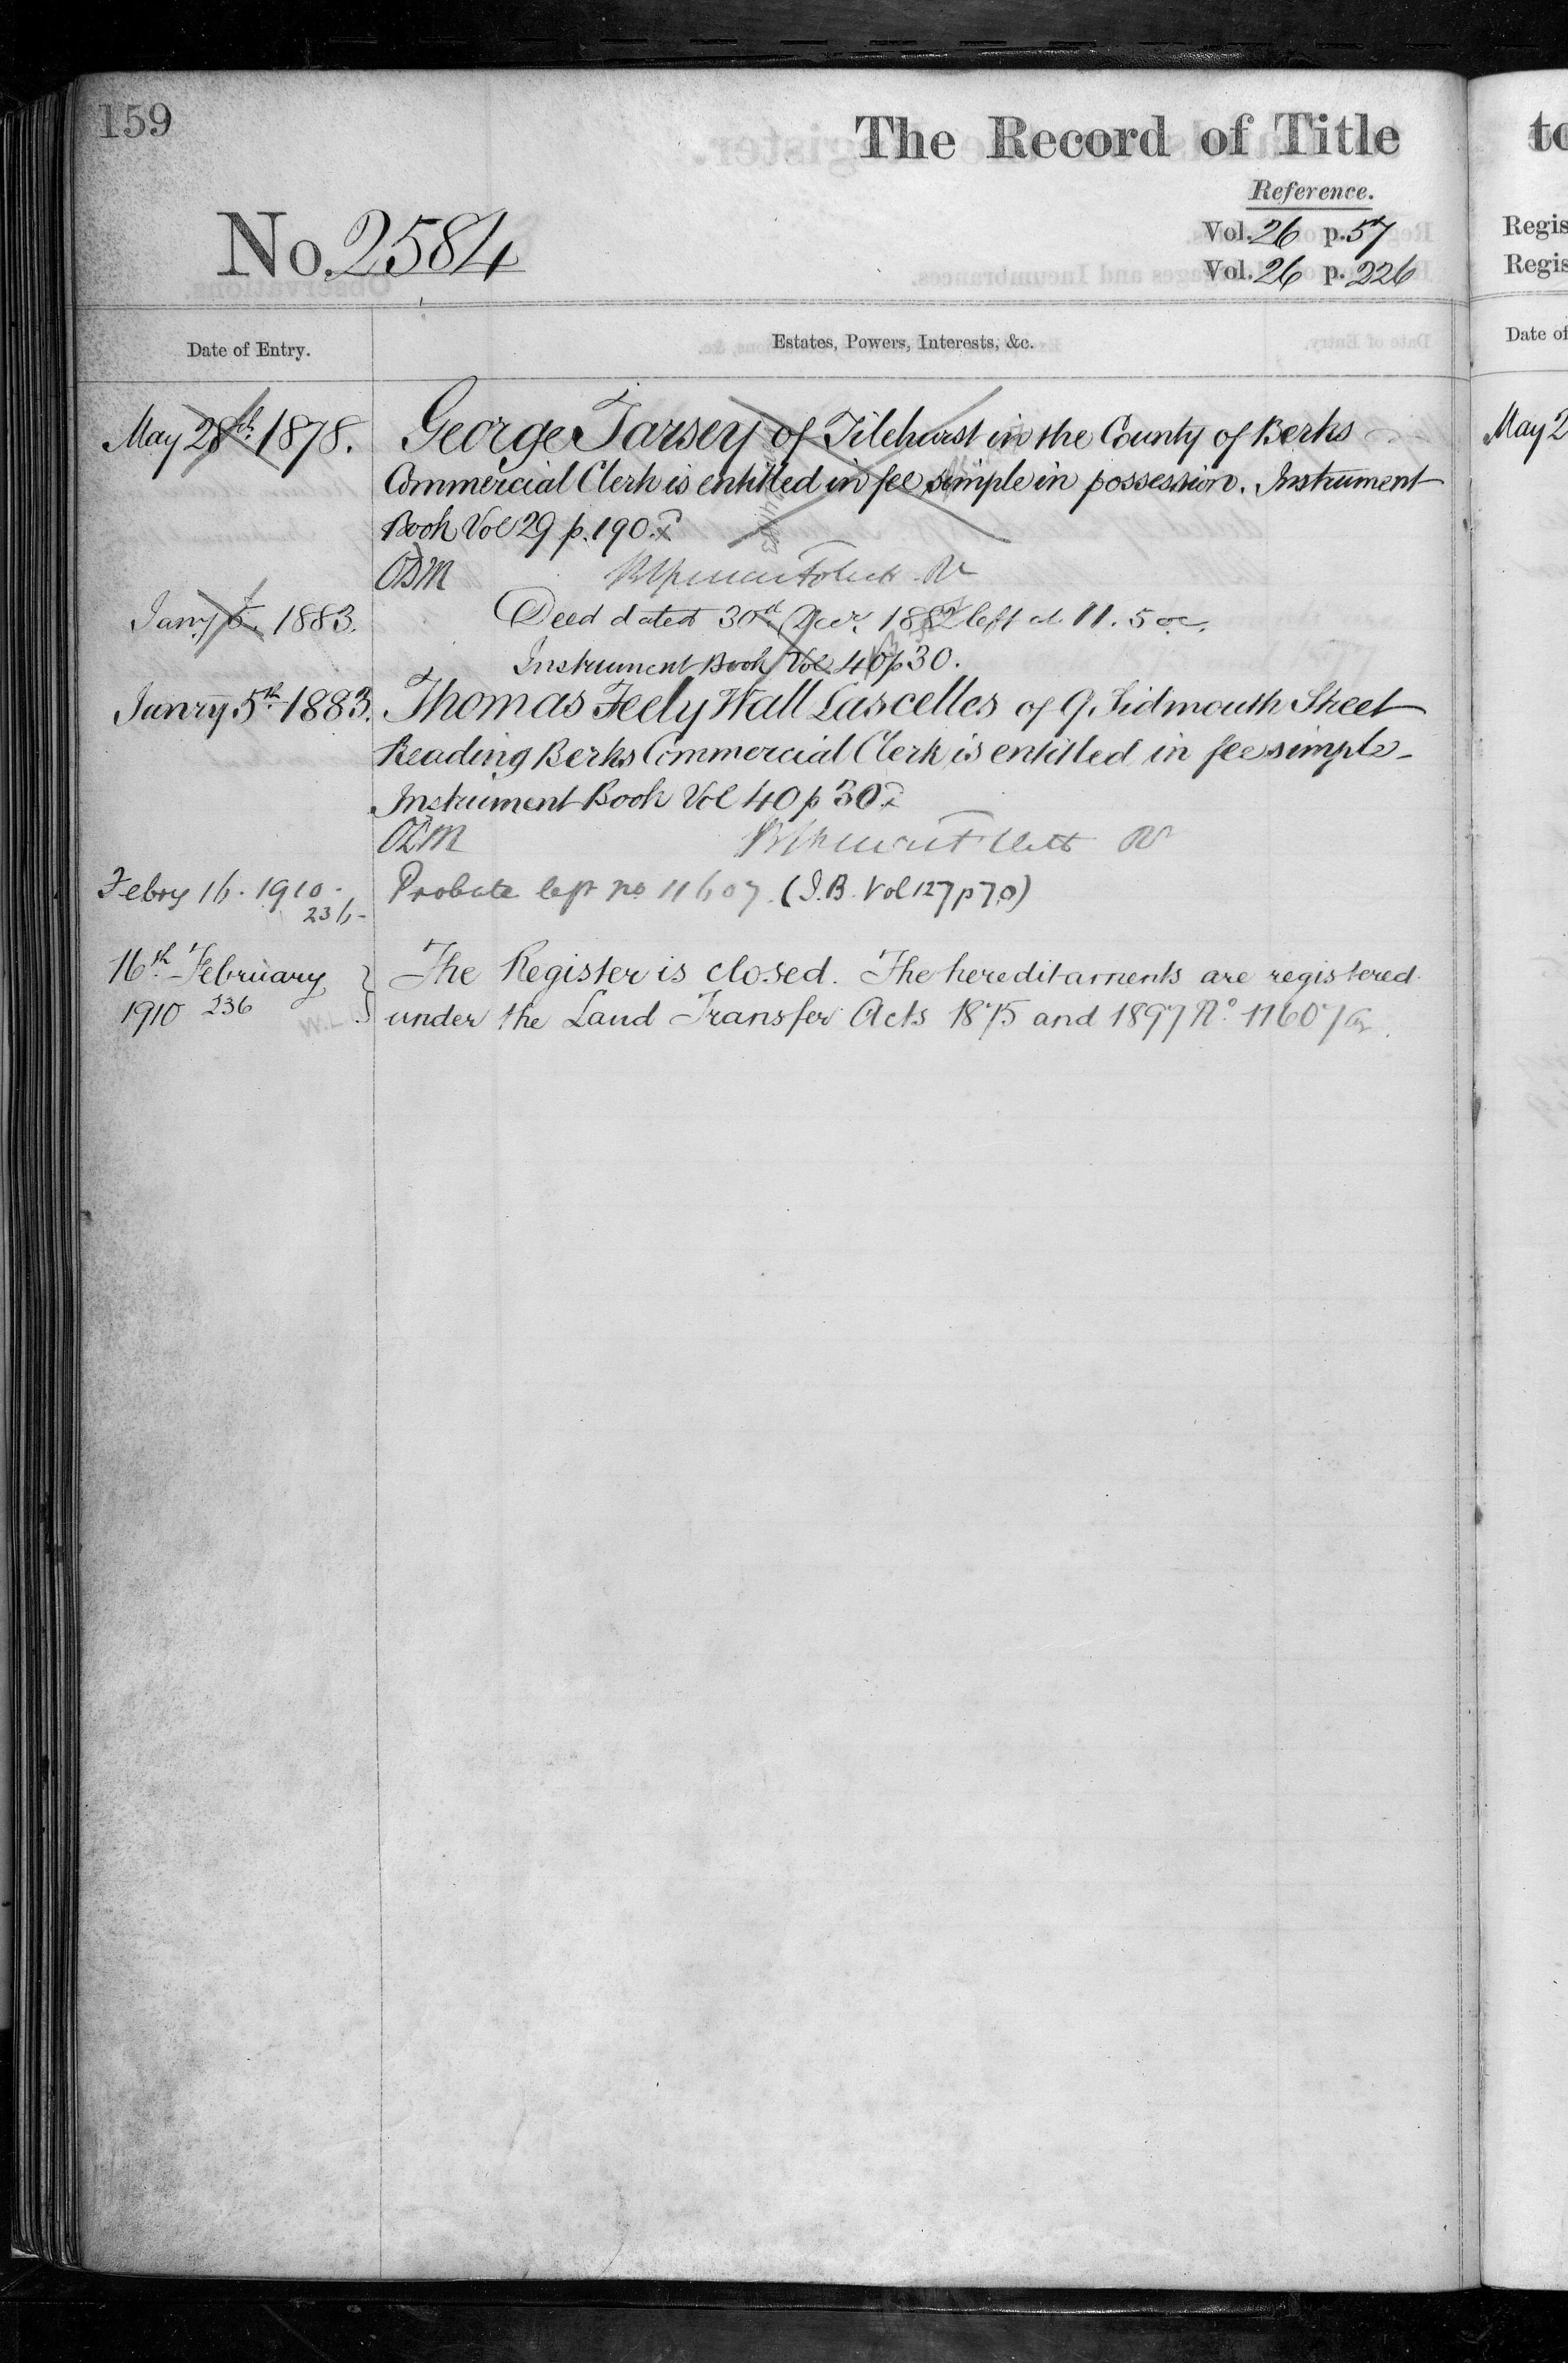 159
The Record of Title
Reference.
No. 2584
Vol. 26 p. 57
Vol. 26 p. 226
Date of Entry.
Estates, Powers, Interests, &c.
May 28th 1878.
George Tarsey of Tilehurst in the County of Berks
Commercial Clerk is entitled in fee simple in possession. Instrument
Book Vol 29 p. 190.
Janry 5. 1883.
Deed dated 30th Decr. 1882 left at 11. 5
Instrument Book Vol 40 p 30.
Janry 5th 1883.
Thomas Feely Wall Lascelles of 9, Sidmouth Street
Reading Berks Commercial Clerk is entitled in fee simple
Instrument Book Vol 40 p 30
Febry 16. 1910.
236
Probate left no 11607. (I.B. Vol 127 p 70)
16th February
The Register is closed. The hereditaments are registered
1910 236
under the Land Transfer Acts 1875 and 1897 No. 11607
to
Regis
Regis
Date of
May 2